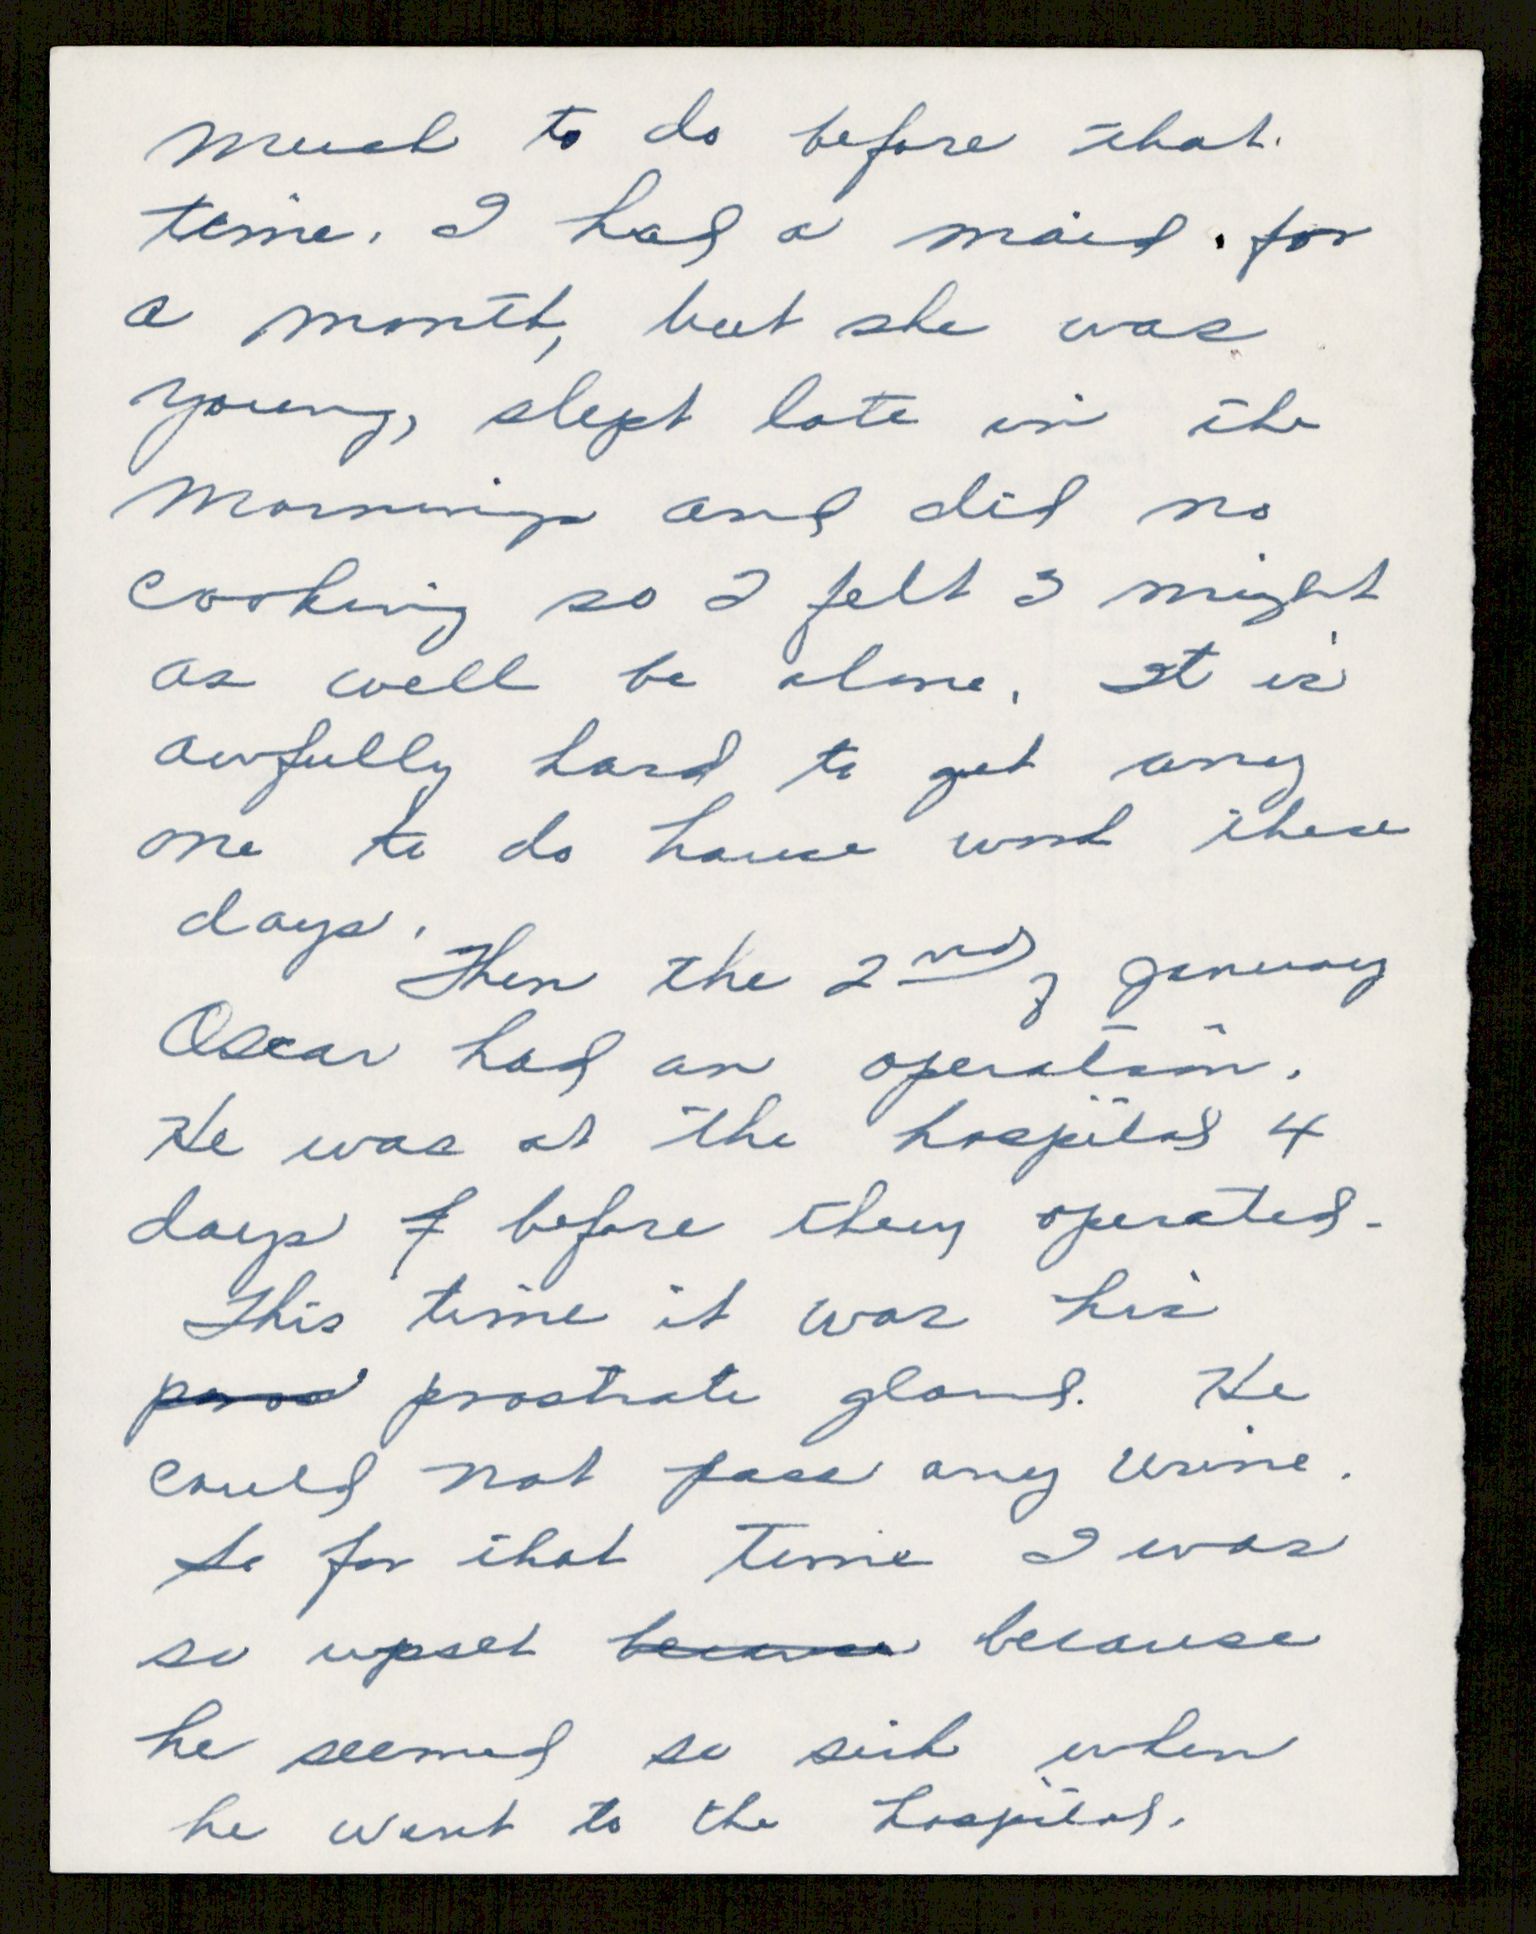 much to do before that.
time. I had a maid for
a month, but she was
young, slept late in the
mornings and did no
cooking so I felt I might
as well be alone. It is
awfully hard to get any
one to do house work these
days.
Then the 2nd of January
Oscar had an operation.
He was at the hospital 4
days before they operated.
This time it was his
prostrate gland. He
could not pass any urine.
So for that time I was
so upset because because
he seemed so sick when
he went to the hospital.